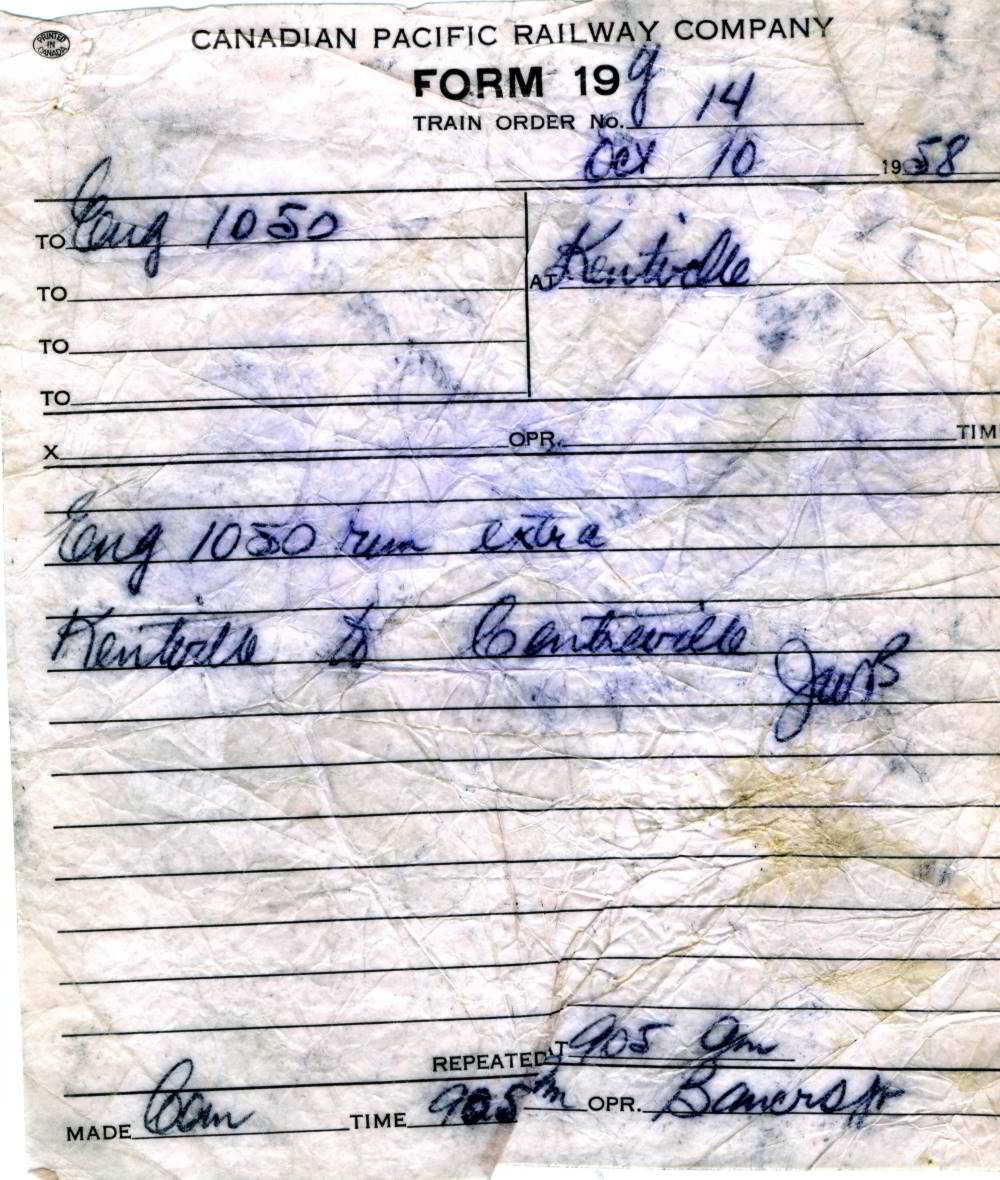 PRINTED
IN
CANADA
CANADIAN PACIFIC RAILWAY COMPANY
FORM 19
TRAIN ORDER No. 14
Oct 10 1958
TO Eng 1050
AT Kentville
TO
TO
TO
X OPR. TIM
Eng 1050 run extra
Kentville to Centreville
REPEATED AT 905 am
MADE Com TIME 905 m OPR.